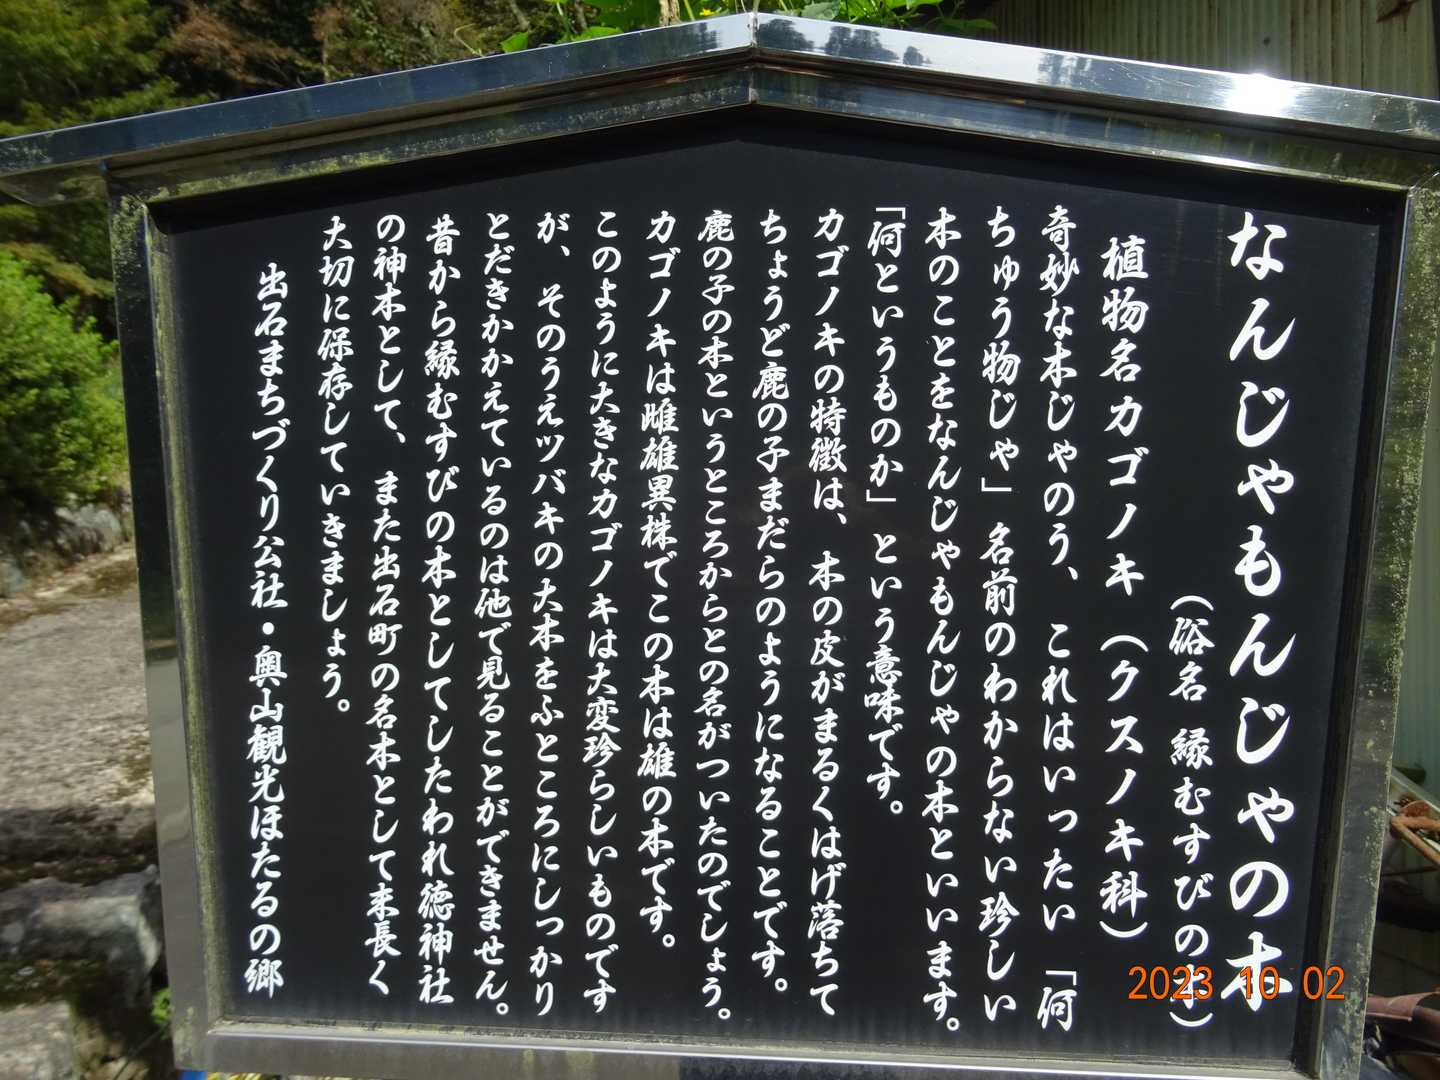 なんじゃもんじゃの木
（俗名 縁むすびの木）
植物名カゴノキ（クスノキ科）
奇妙な木じゃのう、これはいったい「何
ちゅう物じゃ」名前のわからない珍しい
木のことをなんじゃもんじゃの木といいます。
「何というものか」という意味です。
カゴノキの特徴は、木の皮がまるくはげ落ちて
ちょうど鹿の子まだらのようになることです。
鹿の子の木というところからとの名がついたのでしょう。
カゴノキは雌雄異株でこの木は雄の木です。
このように大きなカゴノキは大変珍らしいものです
が、そのうえツバキの大木をふところにしっかり
とだきかかえているのは他で見ることができません。
昔から縁むすびの木としてしたわれ徳神社
の神木として、また出石町の名木として末長く
大切に保存していきましょう。
出石まちづくり公社・奥山観光ほたるの郷
2023 10 02